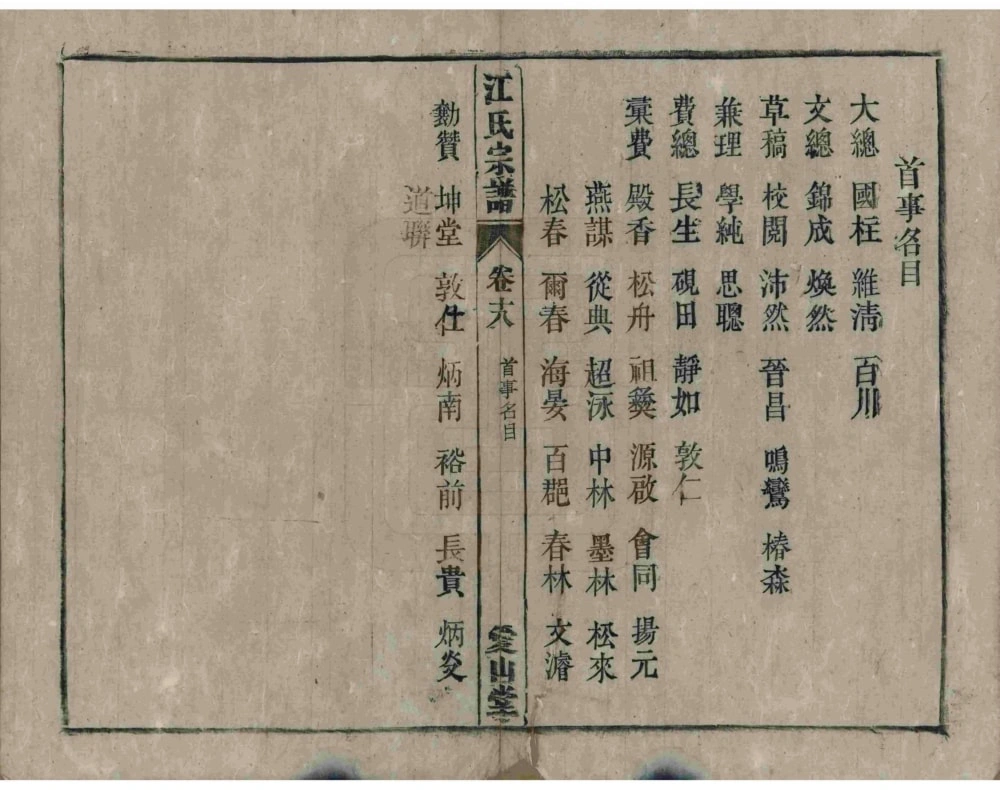 首事名目
大總 國柱 維清 百川
文總 錦成 煥然
草稿 校閱 沛然 晉昌 鳴鸞 椿森
兼理 學純 思聰
費總 長生 硯田 靜如 敦仁
彙費 殿香 松舟 祖燊 源啟 會同 揚元
燕謀 從典 超泳 中林 墨林 松來
松春 爾春 海晏 百熙 春林 文濬
江氏宗譜 卷十八 首事名目 愛山堂
勷贊 坤堂 敦仕 炳南 裕前 長貴 炳炎
道聯